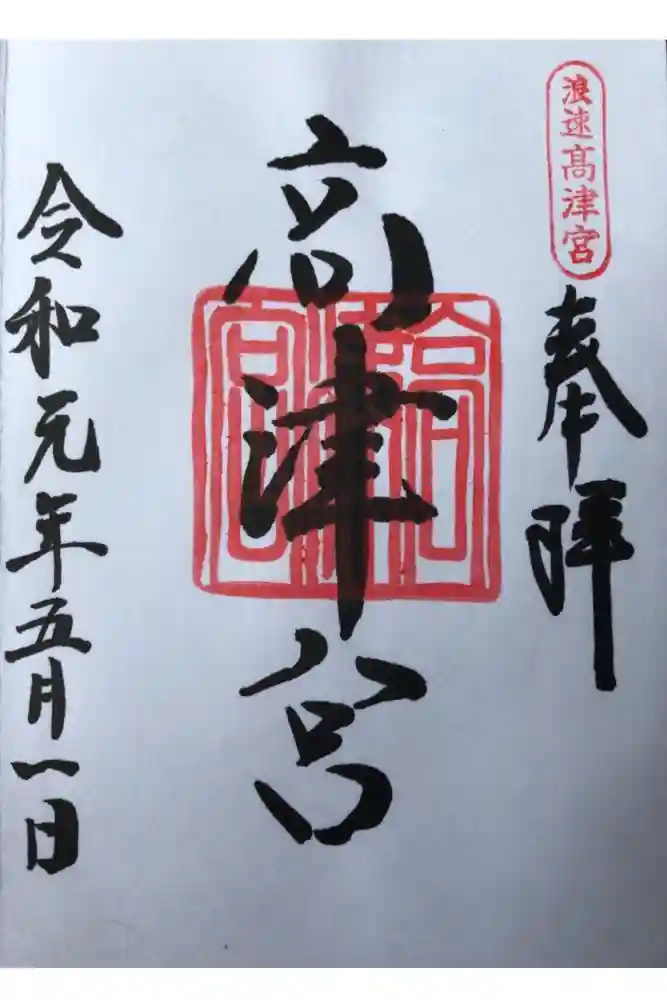 浪速髙津宮
奉拝
高津宮
高津宮
令和元年五月一日